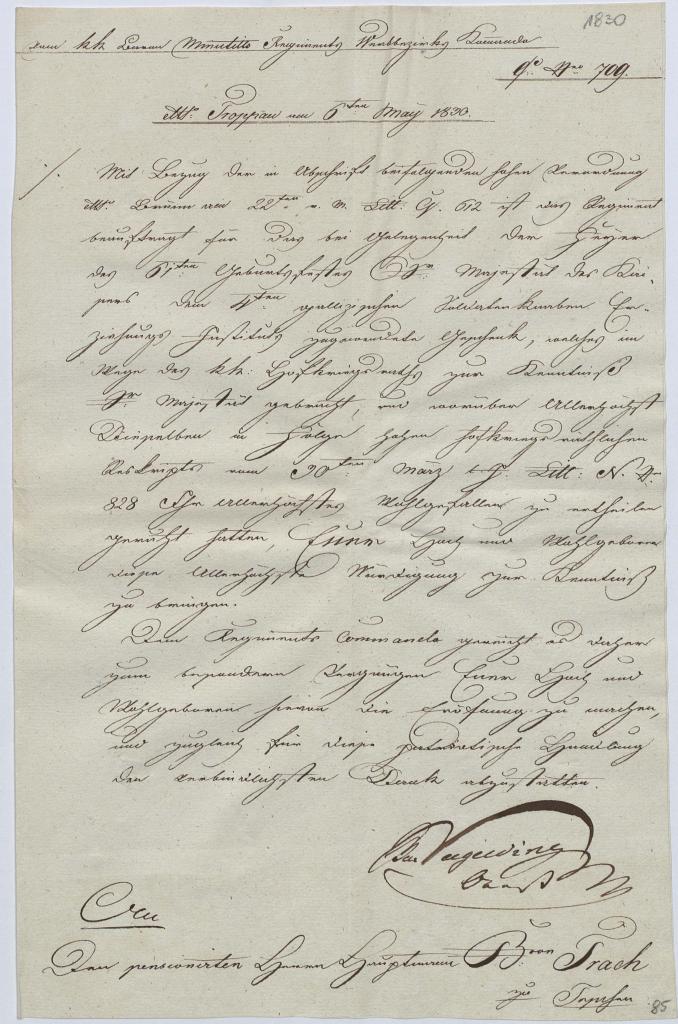 1830
Vom kk Baron Minutillo Regiments Werbbezirks Komando
Nro 709.
Troppau am 6ten May 1830.
Mit Bezug der in Abschrift beifolgenden hohen Verordnung
Brünn am 22ten v. M. Litt: G. 612 ist das Regiment
beauftragt für das bei Gelegenheit der Feyer
des Geburtsfestes Sr Majestät des Kai-
sers dem 4ten gallizischen Soldatenknaben Er-
ziehungs Instituts zugewendete Geschenk, welches im
Wege des kk: Hofkriegsraths zur Kenntniß
Sr Majestät gebracht, und worüber Allerhöchst
Dieselben in Folge hohen hofkriegsräthlichen
Reskripts vom 30ten März Litt: N. Nr
828 Ihr Allerhöchstes Wohlgefallen zu ertheilen
geruht hatten, Euer Hoch und Wohlgeboren
diese Allerhöchste Würdigung zur Kenntniß
zu bringen.
Dem Regiments Commando gereicht es daher
zum besondern Vergnügen Euer Hoch und
Wohlgeboren hievon die Eröfnung zu machen,
und zugleich für diese patriotische Handlung
den verbindlichsten Dank abzustatten.
Obrst
An
Den pensionirten Herrn Hauptmann Bron Trach
zu
85